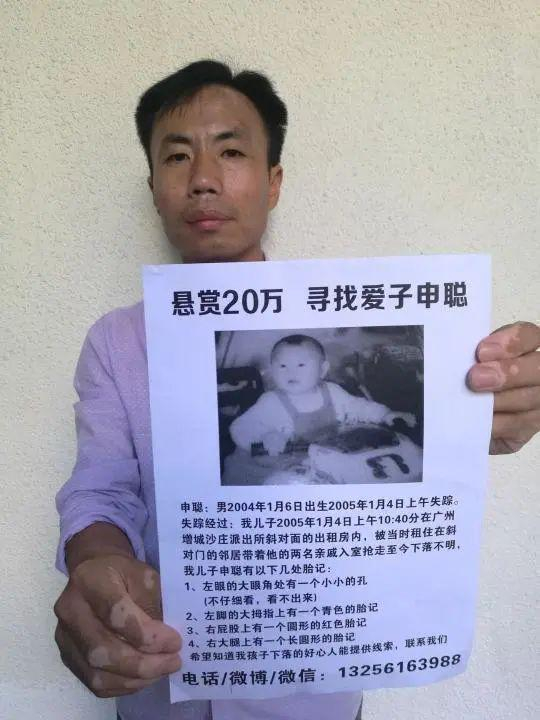 悬赏20万 寻找爱子申聪
申聪：男2004年1月6日出生2005年1月4日上午失踪。
失踪经过：我儿子2005年1月4日上午10:40分在广州
增城沙庄派出所斜对面的出租房内，被当时租住在斜
对门的邻居带着他的两名亲戚入室抢走至今下落不明，
我儿子申聪有以下几处胎记：
1、左眼的大眼角处有一个小小的孔
(不仔细看，看不出来)
2、左脚的大拇指上有一个青色的胎记
3、右屁股上有一个圆形的红色胎记
4、右大腿上有一个长圆形的胎记
希望知道我孩子下落的好心人能提供线索，联系我们
电话/微博/微信：13256163988